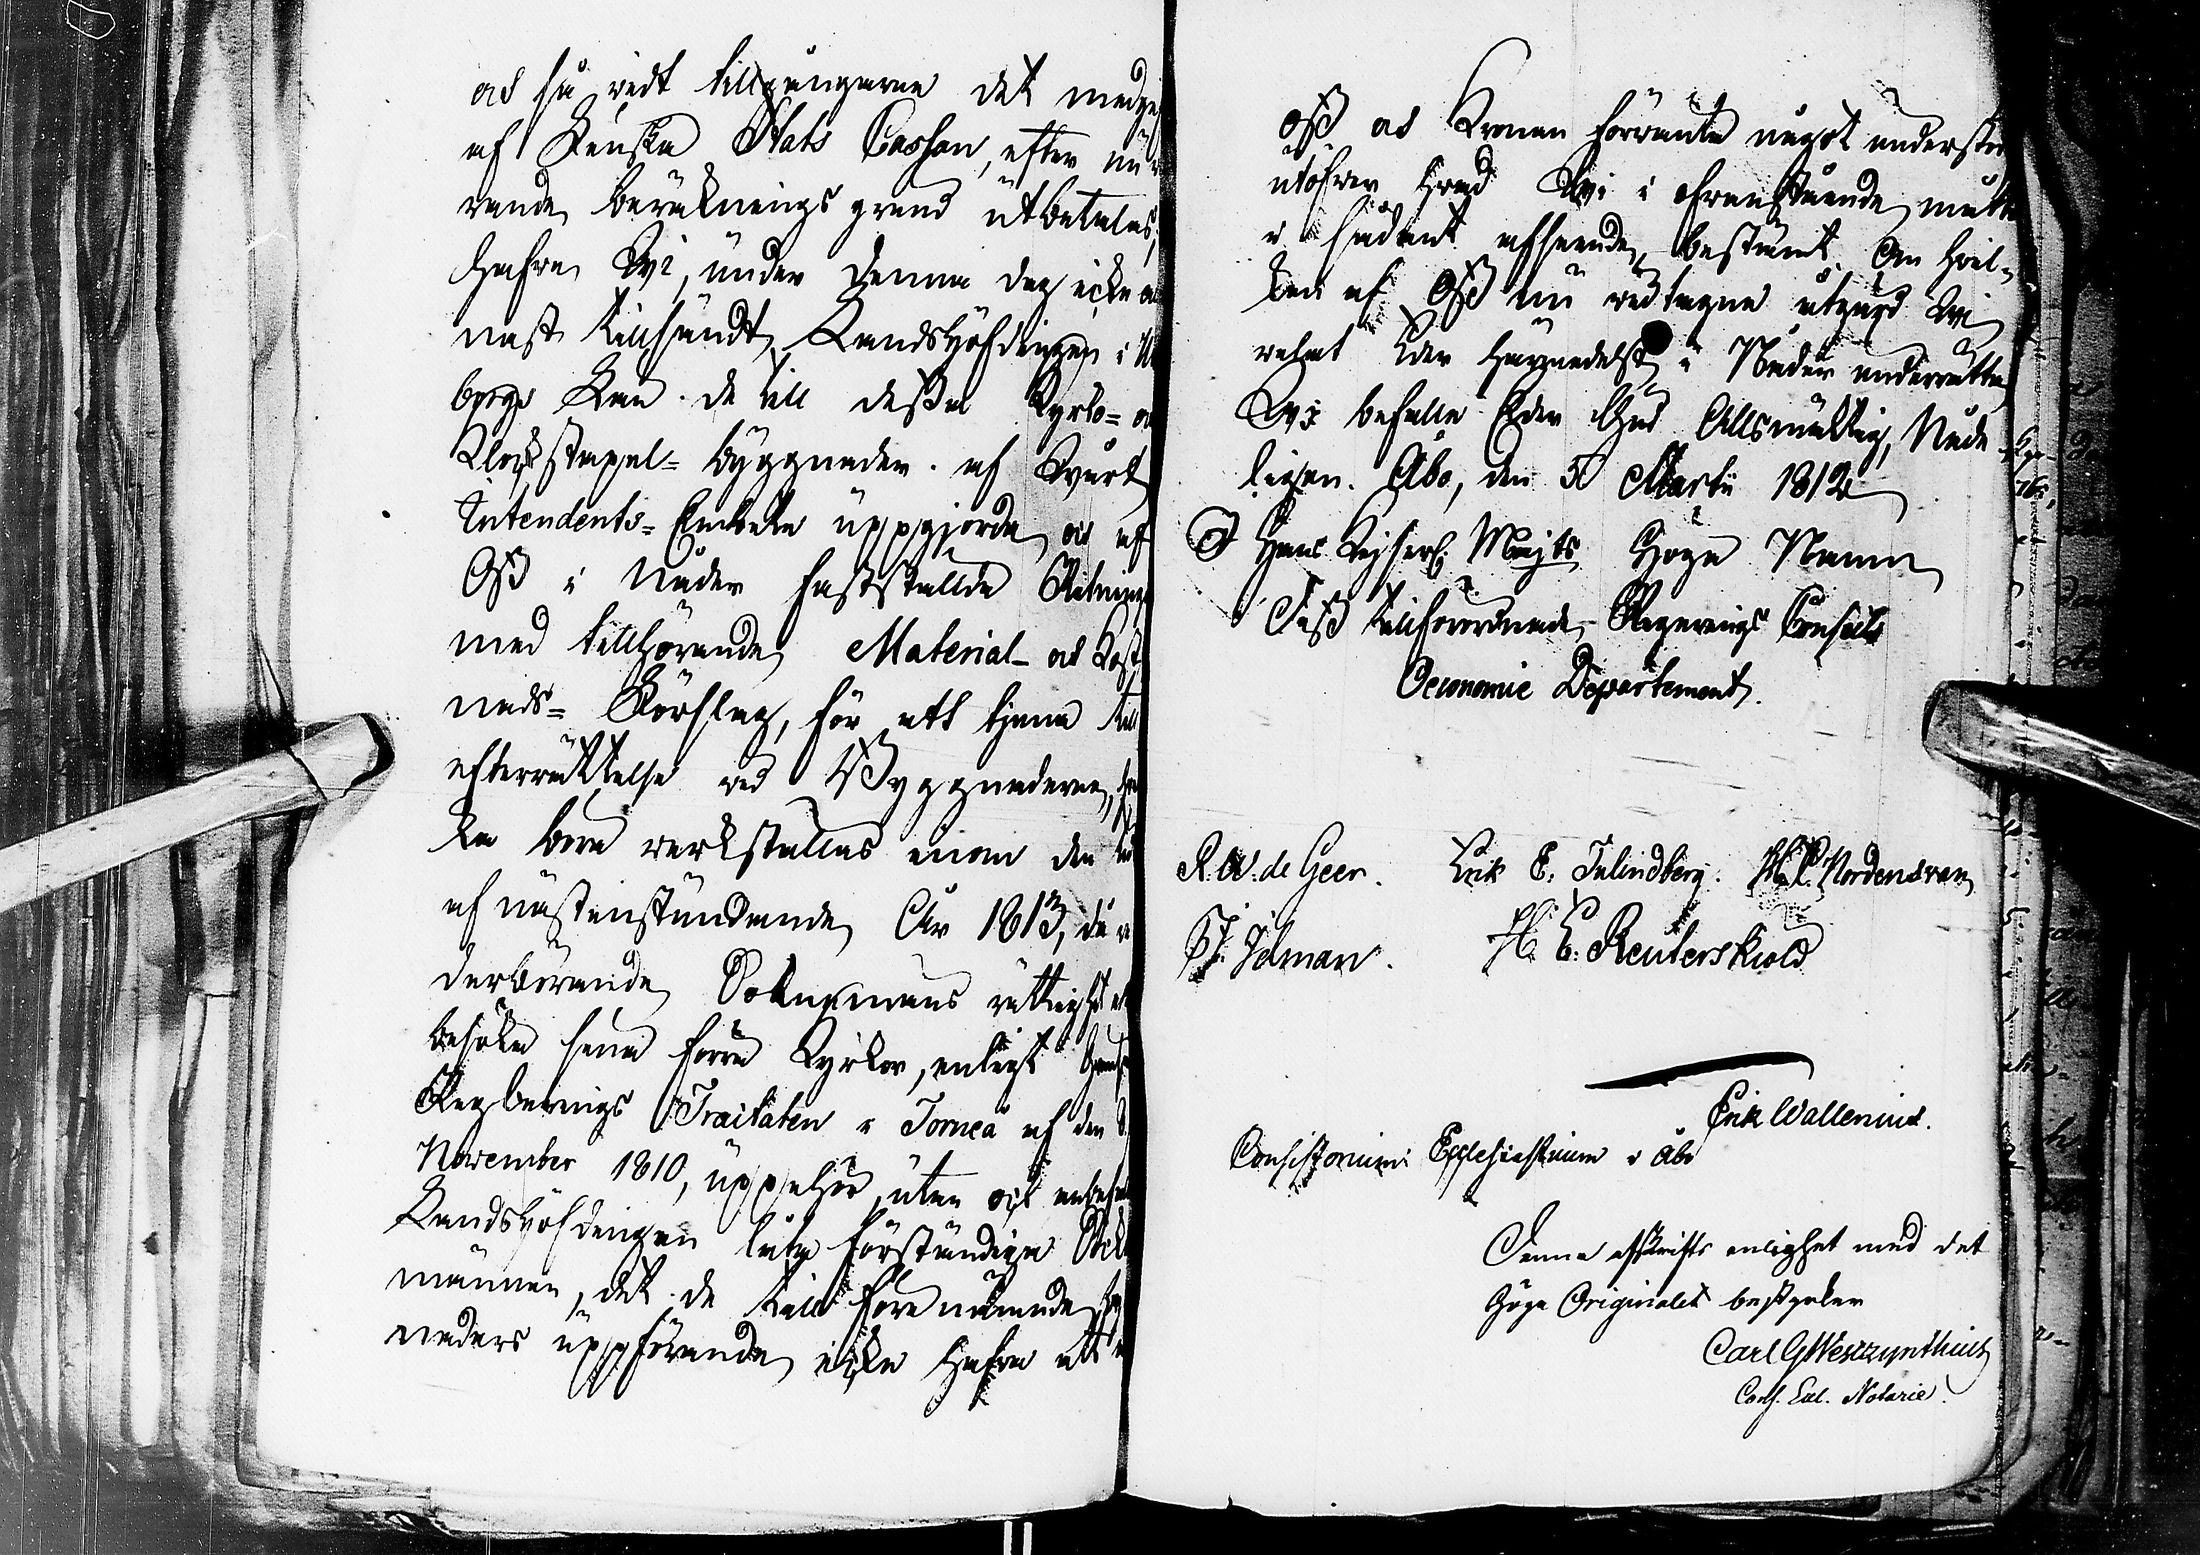 och så widt tillgångarne det medge
af Finska Stats Cassan, efter nu
rande beräknings grund utbetalas,
Hafwe Wi, under denna dag icke a
nast tillsändt Landshöfdingen i U
borgs Län de till dessa Kyrko= oc
Klockstapel= byggnader af Wårt
Intendents= Embete uppgjorde och af
Oss i Nåder fastställde Ritning
med tillhörande Material- och Kost
nads= Förslag, för att tjena till
efterrättelse wid Byggnaderne,
ka böra werkställas innom den
af nästinstundande År 1813, då
derbörande Soknemäns rättighet
besöka sina förra Kyrkor, enligt
Reglerings Traitaten i Torneå af den
November 1810, upphör, utan och
Landshöfdingen låta förständiga
männen, det de till förenämnde
naders uppförande icke hafwa att
Oss och Kronan förwänta något understö
utöfwer hwad Wi i ofwanstående mått
i sådant afseende bestämt. Om hwil-
ken af Oss nu widtagne åtgärd Wi
welat Eder härmedelst i Nåder underrätta
Wi befalle Eder Gud Allsmägtig, Nåde
ligen. Åbo, den 5 Martii 1812
I Hans Kejserl. Majts Höga Namn
Dess tillförordnade Regerings Conseils
Oeconomie Departement.
R. W. de Geer. Erik E. Tulindberg. Nordensvan
Idman. H. E. Reuterskiöld
Erik Wallenius.
Consistorium Ecclesiasticum i Åbo
Denna afskrifts enlighet med det
höga Originalet bestyrker
Carl G Weszzynthius
Cons. Eccl. Notarie.